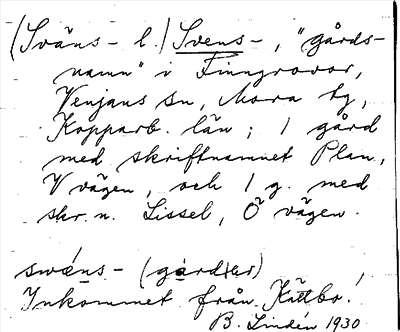 (Sväns- l.) Svens-, "gårds-
namn" i Finngruvor,
Venjans sn, Mora tg,
Kopparb. län; 1 gård
med skriftnamnet Plan,
V vägen, och 1 g. med
skr. n. Lissel, Ö vägen.
swéns- (gårdar)
Inkommet från Kättbo.
B. Lindén 1930